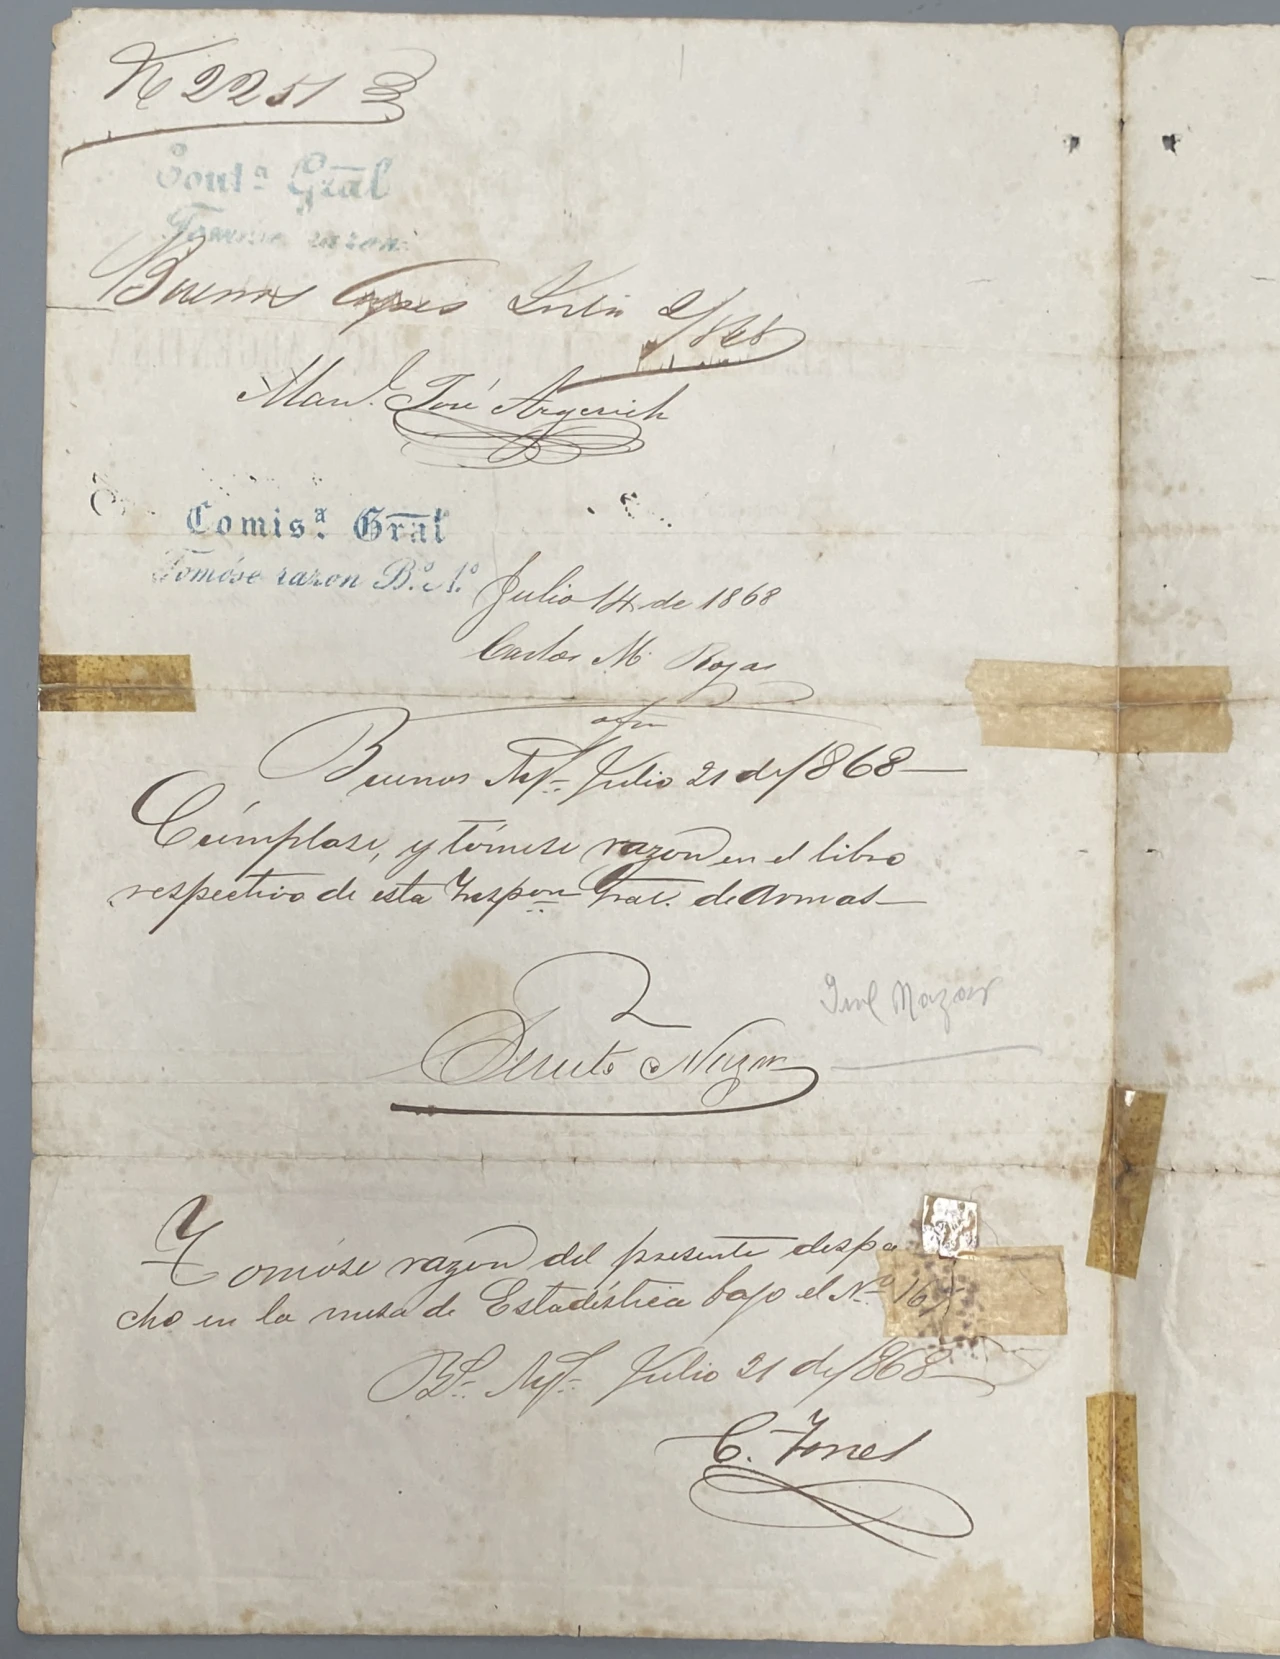 N 2251
Cont.ª Gral
Tomóse razon
Buenos Ayres Julio 9/868
Man.l José Argerich
Comis.ª Gral
Tomóse razon B.s A.s Julio 14 de 1868
Carlos M. Rojas
Buenos Ay.s Julio 21 de /868—
Cúmplase, y tómese razon en el libro
respectivo de esta Inspon Gral. de Armas—
Benito Nazar
Nazar
Tomóse razon del presente despa
cho en la mesa de Estadística bajo el N.o 16
B.s Ay.s Julio 21 de /868—